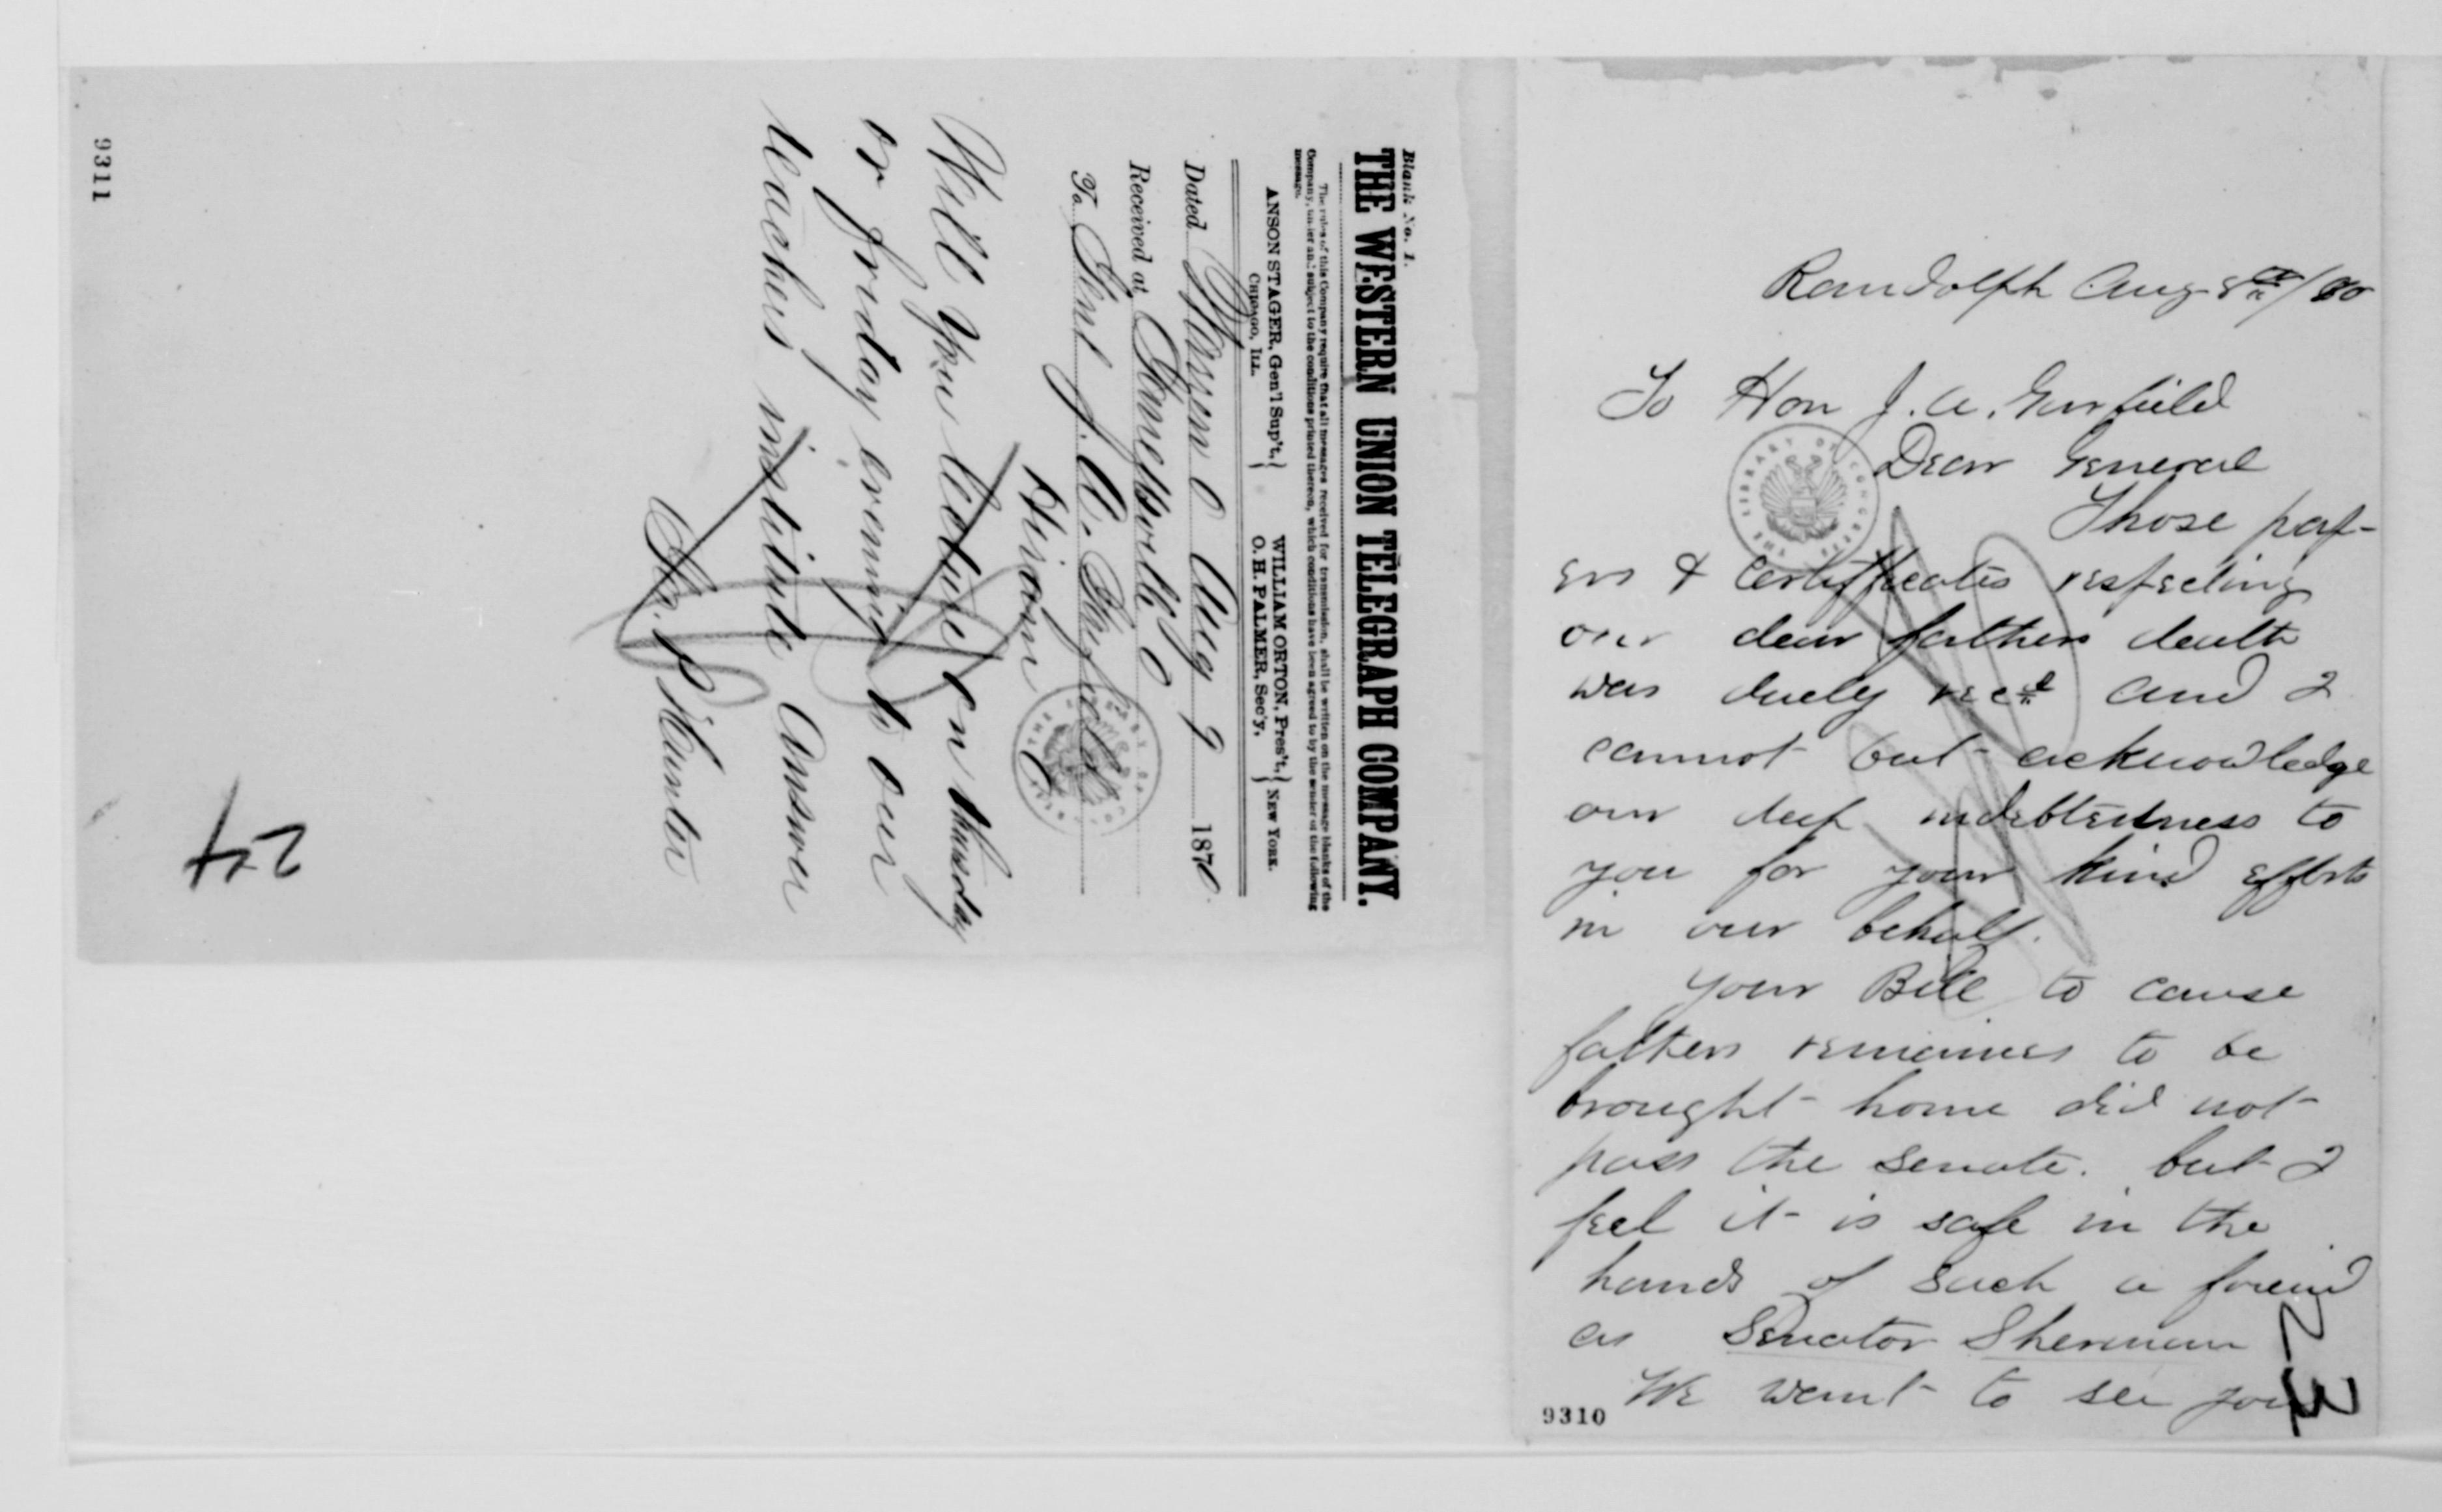 Blank No. 1.
THE WESTERN UNION TELEGRAPH COMPANY.
The rules of this Company require that all messages received for transmission, shall be written on the message blanks of the
Company, under and subject to the conditions printed thereon, which conditions have been agreed to by the sender of the following
message.
ANSON STAGER, Gen'l Sup't.,
CHICAGO, ILL.
WILLIAM ORTON, Pres't.,
O. H. PALMER, Sec'y,
NEW YORK.
Dated Mason O Aug 9 1870
Received at Garrettsville O
To Genl J. A. Garfield
Hiram O
Will you lecture on Thursday
or friday evening to our
teachers institute Answer
P Hunter
24
9311
Randolph Aug 8th/80
To Hon J. A. Garfield
Dear General
Those pap-
ers & certificates respecting
our dear fathers death
was duely recd and I
cannot but acknowledge
our deep indebtedness to
you for your kind efforts
in our behalf.
Your Bill to cause
fathers remaines to be
brought home did not
pass the Senate. but I
feel it is safe in the
hands of such a friend
as Senator Sherman
We want to see you
23
9310
LIBRARY OF CONGRESS